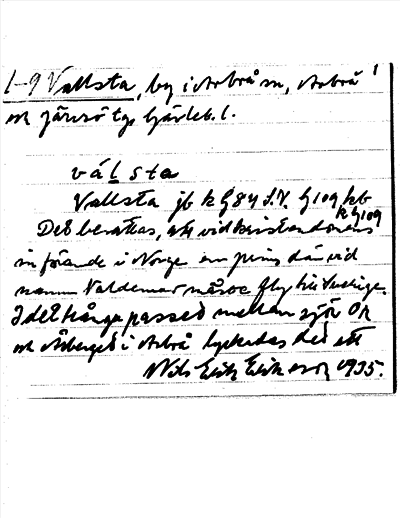 1-9 Vallsta, by i Arbrå sn, Arbrå 1
och Järvsö tg, Gävleb. l.
válsta
Vallsta jb k G84 J.V. G109 kb
k G109
Det berättas, att vid kristendomens
införande i Norge en prins där vid
namn Valdemar måste fly till Sverige.
I det trånga passet mellan sjön Or
och Åsberget i Arbrå lyckades det ett
Nils Erik Eriksson 1935.